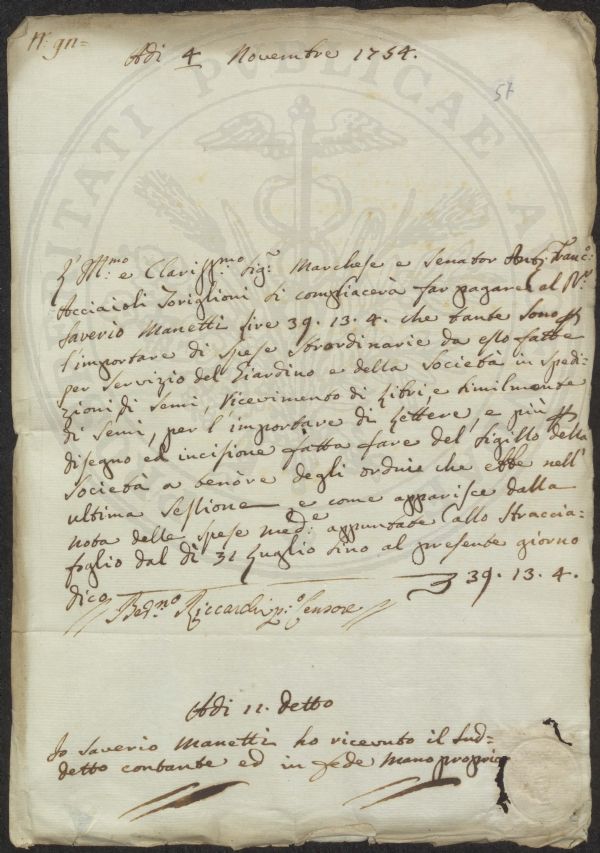 N.° 911=
Adi 4 Novembre 1754.
57
L'Ill.mo e Clariss.mo Sig.r Marchese e Senator Ant: Franc.°
Acciaioli Toriglioni si compiacerà far pagare al
Saverio Manetti lire 39. 13. 4. che tante sono p
l'importare di spese straordinarie da esso fatte
per servizio del Giardino e della Società in spedi=
zioni di semi, ricevimento di Libri, e similmente
di semi, per l'importare di Lettere, e più p
disegno ed incisione fatta fare del sigillo della
Società a tenore degli ordini che ebbe nell'
ultima sessione e come apparisce dalla
nota delle spese med.e appuntate allo straccia=
foglio dal dì 31 Luglio sino al presente giorno
dico 39. 13. 4.
Bern.no Riccardi p.o Censore
Adi 11. detto
Io Saverio Manetti ho ricevuto il sud=
detto contante ed in fede mano propria
VERITATI PUBLICAE